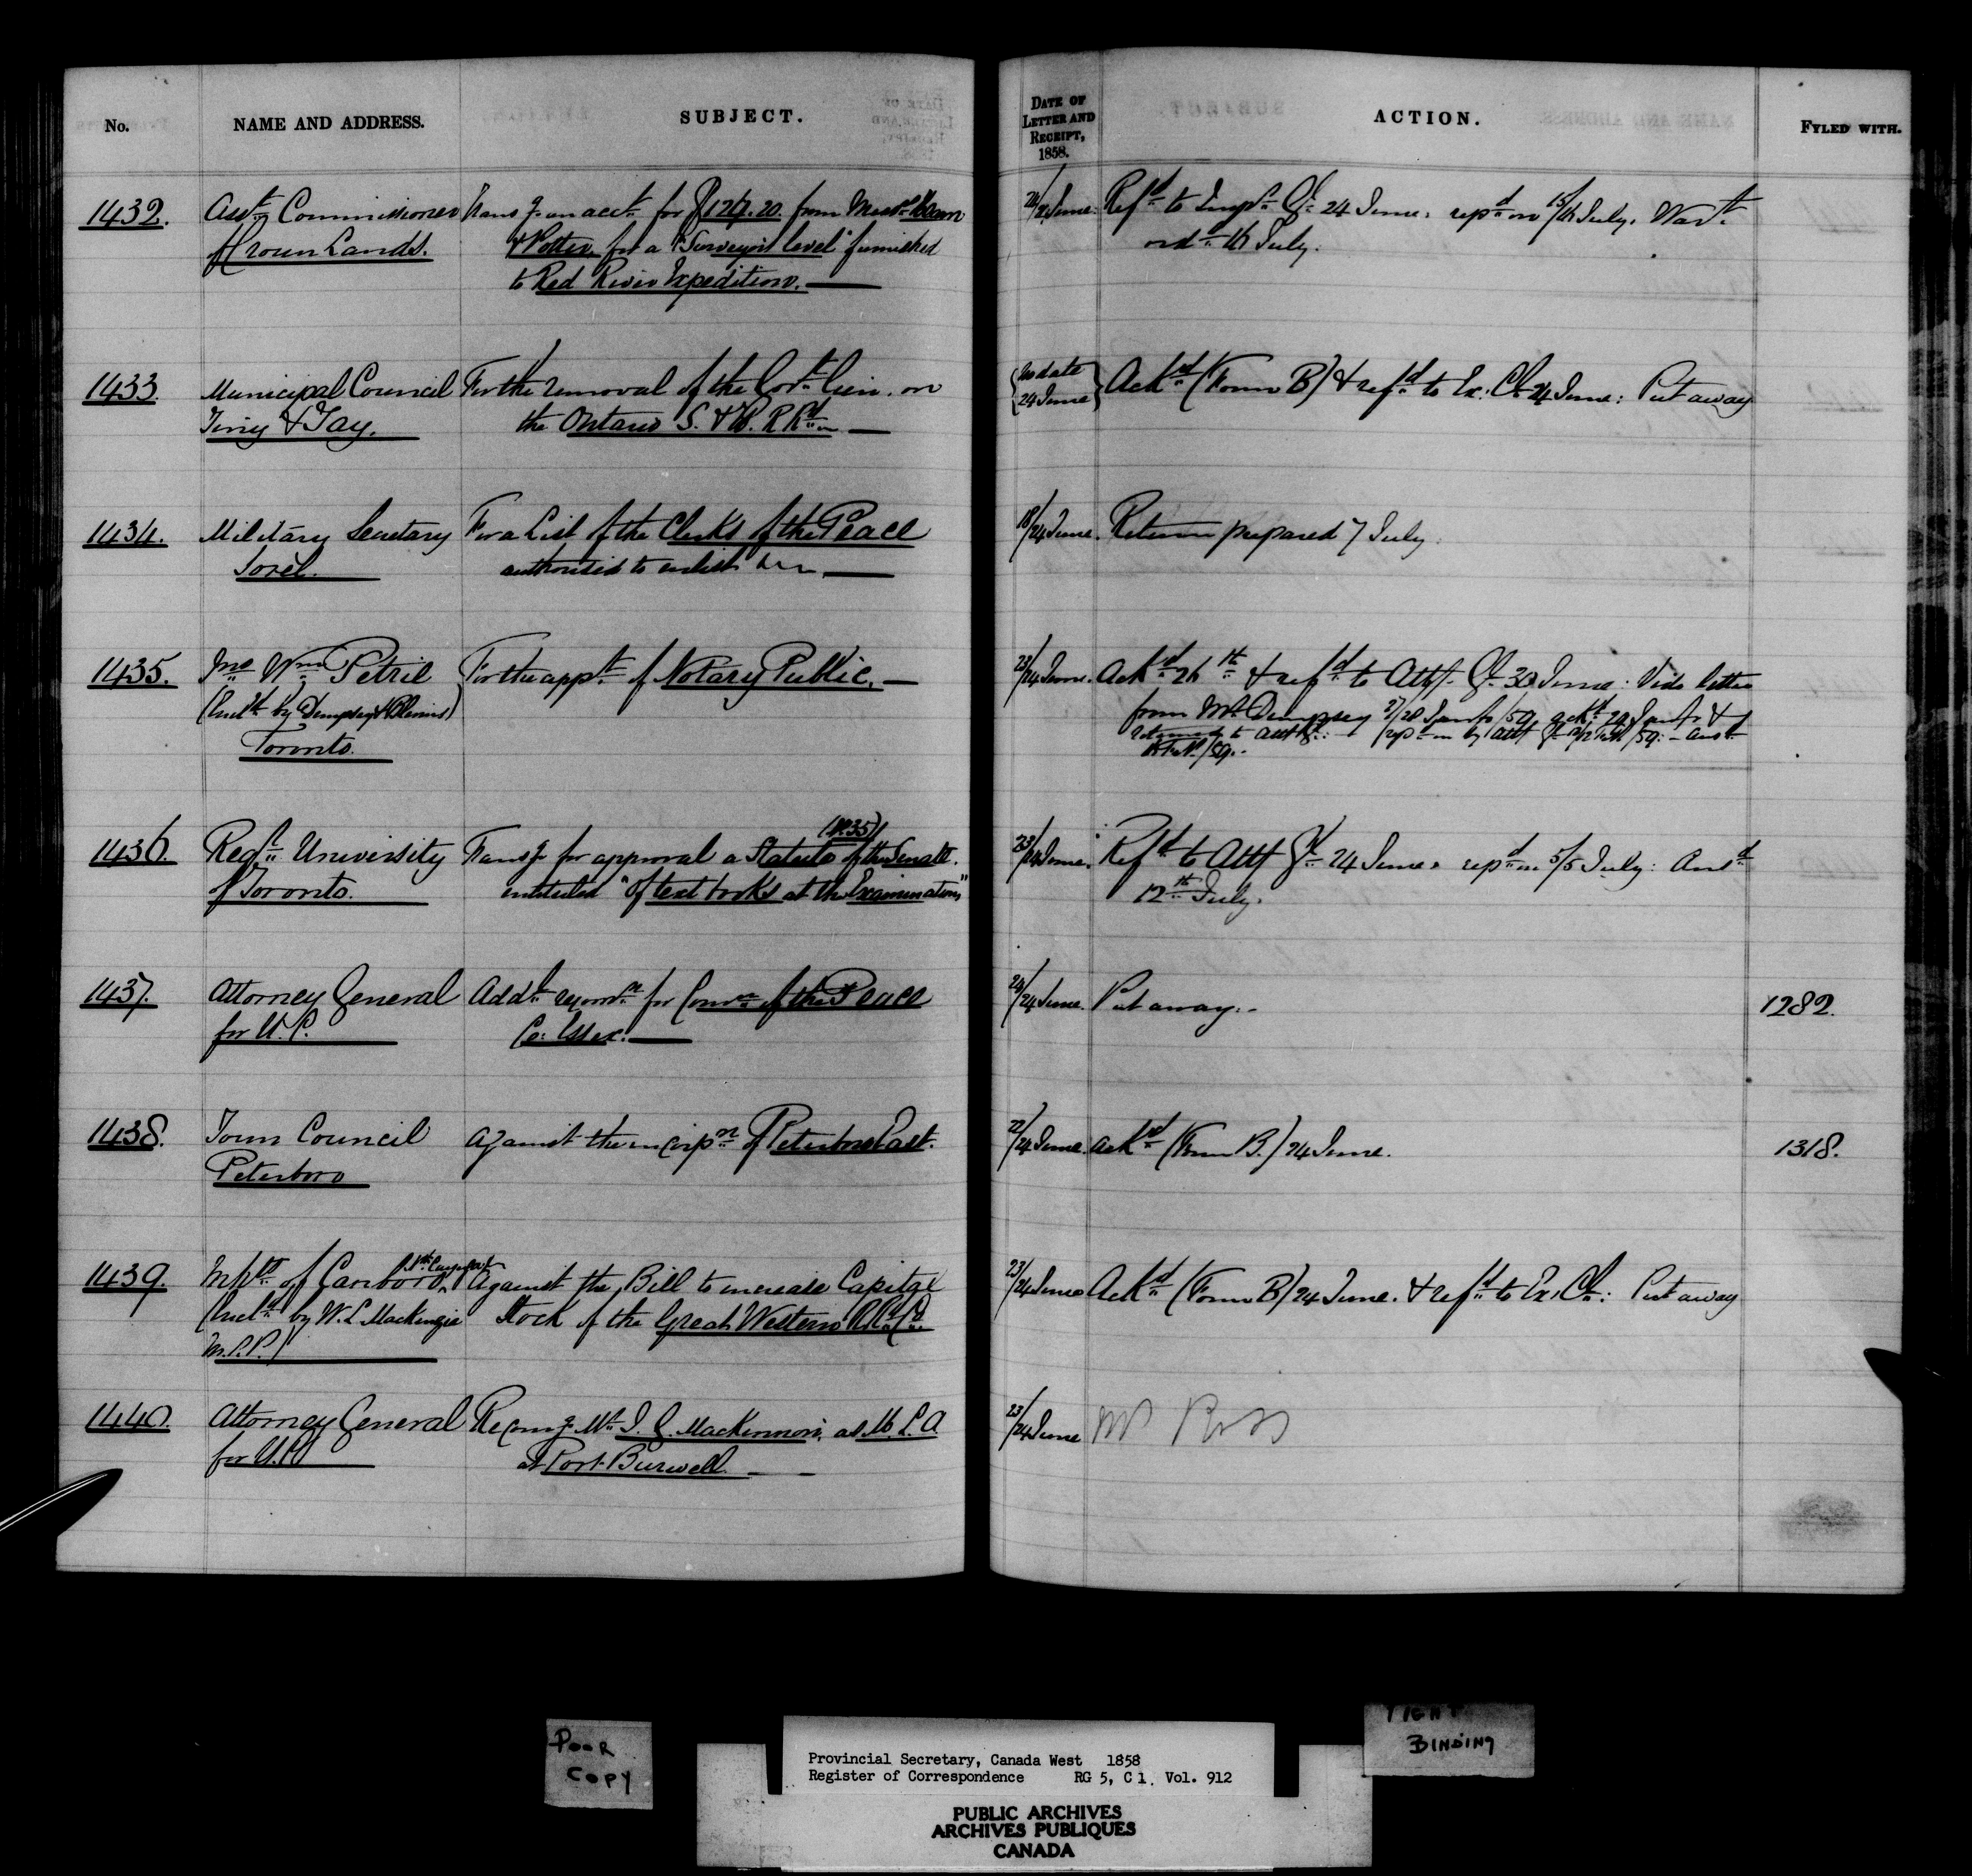 No.
NAME AND ADDRESS.
SUBJECT.
DATE OF LETTER AND RECEIPT, 1858.
ACTION.
FYLED WITH.
1432.
Asst. Commissioner
of Crown Lands.
Transg. an acct. for $124.20. from Messrs. Hearn
& Potter, for a "Surveyor's level" furnished
to Red River Expedition.
24/24 June.
Refd. to Inspr. Gl. 24 June. repd. on 15/16 July. Wart.
ord. 16 July.
1433.
Municipal Council
Tiny & Tay.
For the removal of the Govt. lien on
the Ontario S. & H. R Rd.
No date
24 June
Ackd. (Form B) & refd. to Ex. Cl. 24 June: Put away
1434.
Military Secretary
Sorel.
For a List of the Clerks of the Peace
authorized to enlist
18/24 June.
Return prepared 7 July.
1435.
Jno. Wm. Petrie
(Encld. by Dempsey &
Toronto.
For the appt. of Notary Public.
23/24 June.
Ackd. 26th. & refd. to Atty. Gl. 30 June: Vide letter
from Mr. Dempsey 27/28 Jany/59, ackd. 29 Jany &
returned to Atty Gl.: repd. on by Atty Gl. /59: - Ansd.
16 Feb/59.
1436.
Regr. University
of Toronto.
Transg. for approval a Statute (No.35) of the Senate.
entituled "Of text books at the Examinations"
23/24 June.
Refd. to Atty Gl. 24 June. repd. on 5/5 July: Ansd.
12th. July.
1437.
Attorney General
for U.C.
Addl. recomn. for Comn. of the Peace
Co: Essex.
24/24 June.
Put away.
1282.
1438.
Town Council
Peterboro
Against the incorpn. of Peterboro East.
22/24 June.
Ackd. (Form B.) 24 June.
1318.
1439.
Inhts. of Canboro,
(Encld. by W. L. Mackenzie
M.P.P.)
Against the Bill to increase Capital
Stock of the Great Western R.R. Co.
23/24 June
Ackd. (Form B) 24 June. & refd. to Ex. Cl.: Put away
1440.
Attorney General
for U.C.
Recomg. Mr. J. G. Mackinnon, as M.L.A
at Port Burwell.
23/24 June
Mr Ross
POOR
COPY
TIGHT
BINDING
Provincial Secretary, Canada West 1858
Register of Correspondence RG 5, C 1, Vol. 912
PUBLIC ARCHIVES
ARCHIVES PUBLIQUES
CANADA